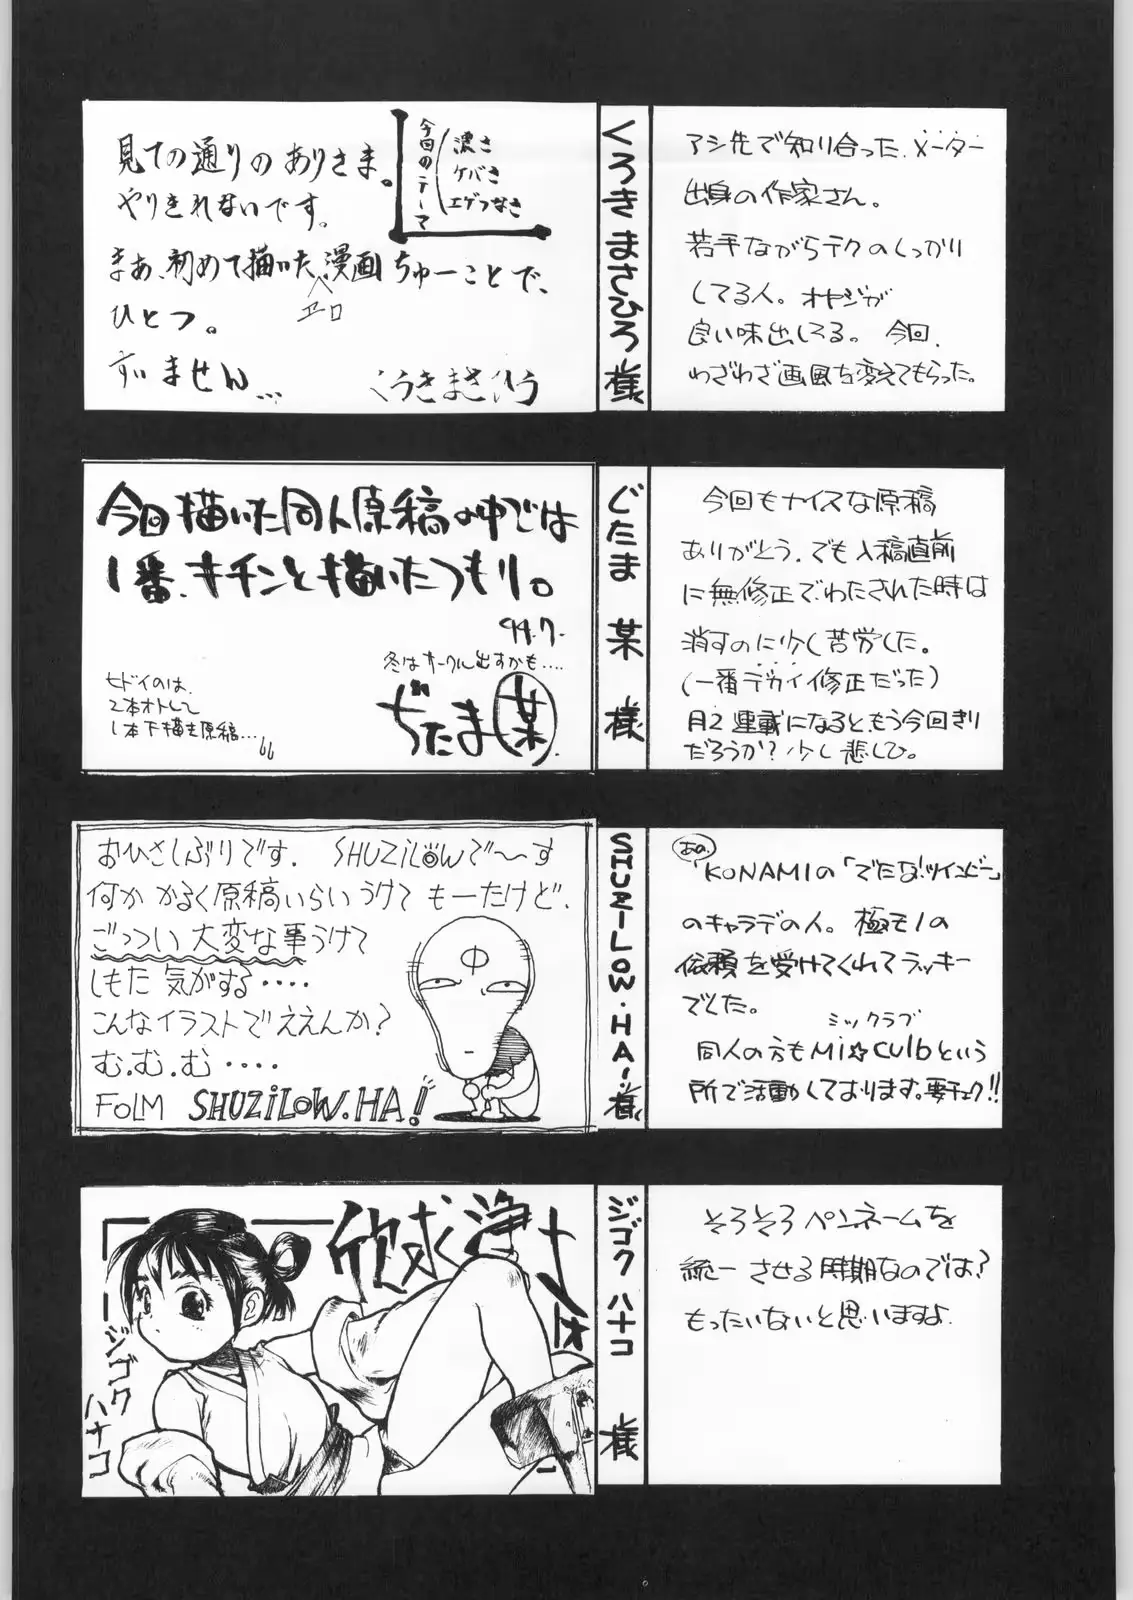 見ての通りのありさま。
やりきれないです。
まぁ、初めて描いた漫画ちゅーことで、
エロ
ひとつ。
すいません…
くろきまさひろ
今回のテーマ
濃さ
ケバさ
エゲつなさ
くろきまさひろ様
アシ先で知り合った、メーター
出身の作家さん。
若手ながらテクのしっかり
してる人。オヤジが
良い味出してる。今回、
わざわざ画風を変えてもらった。
今回描いた同人原稿の中では
1番、キチンと描いたつもり。
94.7-
冬はサークル出すかも‥‥
ヒドイのは、
2本オトして
1本下描き原稿…
ぢたま(某).
ぢたま 某 様
今回もナイスな原稿
ありがとう。でも入稿直前
に無修正で、わたされた時は
消すのに少し苦労した。
(一番デカイイ修正だった)
月2連載になると、もう今回きり
だろうか?少し悲しひ。
おひさしぶりです. SHUZiLOWで〜す
何か かるく原稿いらいうけて もーたけど、
ごっつい 大変な事うけて
しもた 気がする・・・・
こんなイラストでええんか?
む.む.む・・・・
FoLM SHUZiLOW.HA!
中
SHUZILOW・HA!様
あの、
「KONAMIの「でたな!ツインビー」
のキャラデの人。極モノの
依頼を受けてくれてラッキー
でした。
ミックラブ
同人の方もMi☆Culbという
所で活動しております。要チェク!!
欣求浄土
ジゴク
ハナコ
ジゴク ハナコ 様
そろそろ ペンネームを
統一させる時期なのでは?
もったいないと思いますよ.